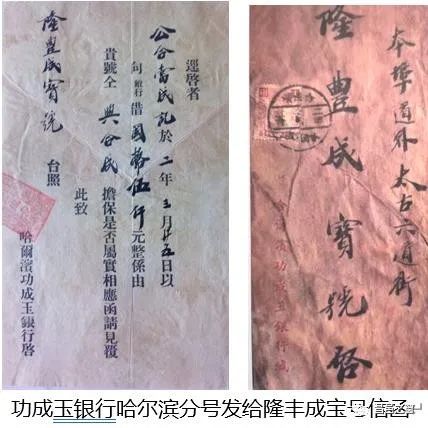 逕啓者
公合當記於二年三月廿五日以
向敝行借國幣伍仟元整係由
貴號仝興合成擔保是否屬實相應函請見覆
此致
隆豊成寶號 台照
哈爾濱功成玉銀行啓
本埠道外太古六道街
隆豊成寶號啓
功成玉銀行緘
功成玉银行哈尔滨分号发给隆丰成宝号信函